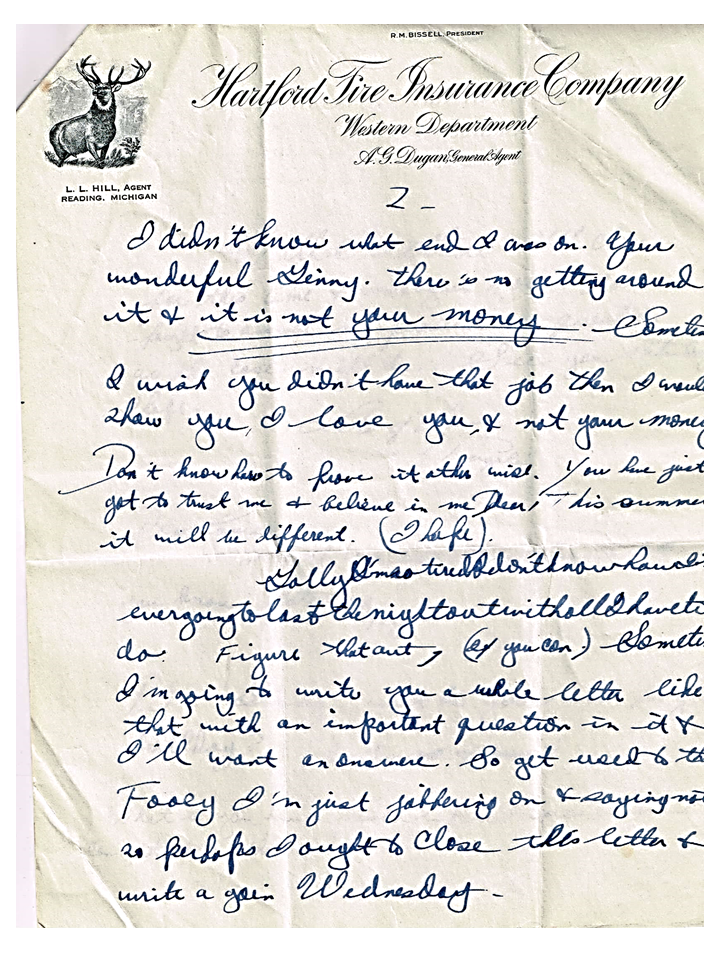 R.M. BISSELL, PRESIDENT
Hartford Fire Insurance Company
Western Department
A.G. Dugan, General Agent
L. L. HILL, AGENT
READING, MICHIGAN
2 -
I didn't know what end I was on. Your
wonderful Ginny. there is no getting around
it & it is not your money. - Sometim
I wish you didn't have that job then I would
show you, I love you, & not your money
Don't know how to prove it other wise. You have just
got to trust me & believe in me Dear! This summer
it will be different. (I hope).
GollyI'msotiredIdon'tknowhowI
evergoingtolastthenightoutwithallIhaveto
do. Figure that out, (if you can.) Someti
I'm going to write you a whole letter like
that with an important question in it &
I'll want an answere. So get used to th
Fooey I'm just jabbering on & saying not
so perhaps I ought to close this letter &
write a gain Wednesday -